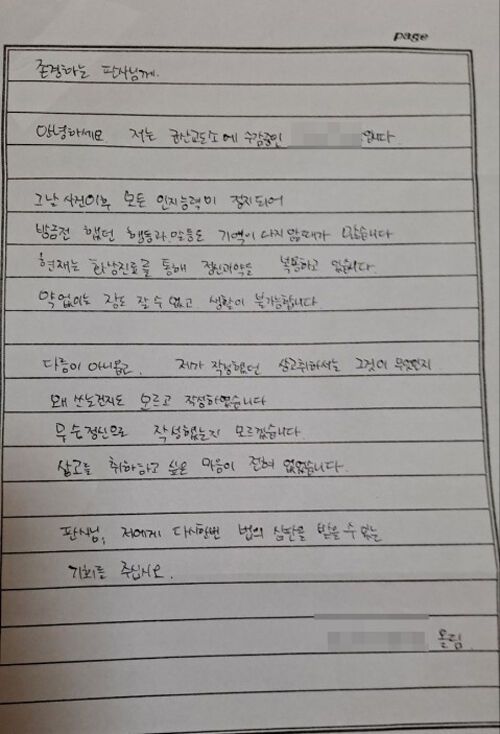 page
존경하는 판사님께.
안녕하세요. 저는 군산교도소에 수감중인 입니다.
그날 사건이후 모든 인지능력이 정지되어
방금전 했던 행동과 말들도 기억이 나지 않을때가 많습니다
현재는 화상진료를 통해 정신과약을 복용하고 있습니다.
약 없이는 잠도 잘 수 없고 생활이 불가능합니다
다름이 아니옵고. 제가 작성했던 상고취하서는 그것이 무엇인지
왜 쓰는건지도 모르고 작성하였습니다
무슨정신으로 작성했는지 모르겠습니다.
상고를 취하하고 싶은 마음이 전혀 없었습니다.
판사님, 저에게 다시한번 법의 심판을 받을 수 있는
기회를 주십시오.
올림.